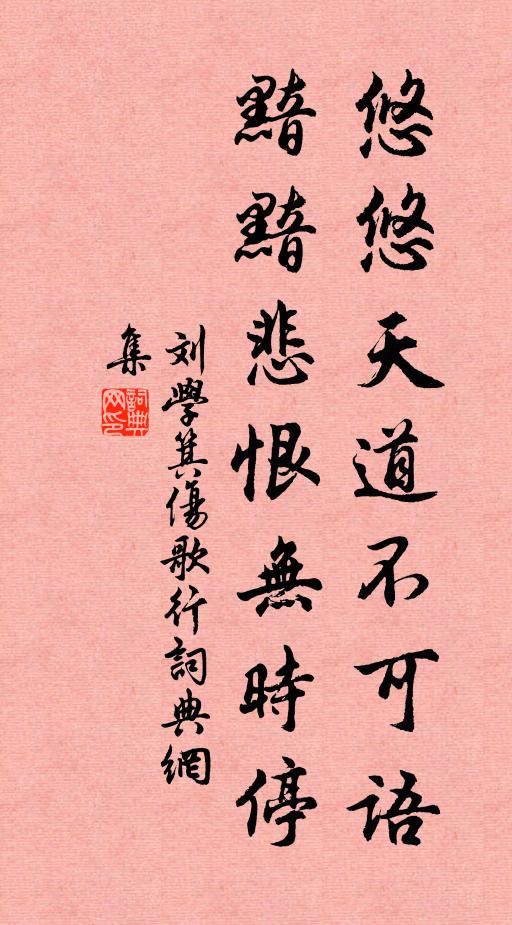 悠悠天道不可語
黯黯悲恨無時停
刘學箕傷歌行詞典網
集
詞典
网印